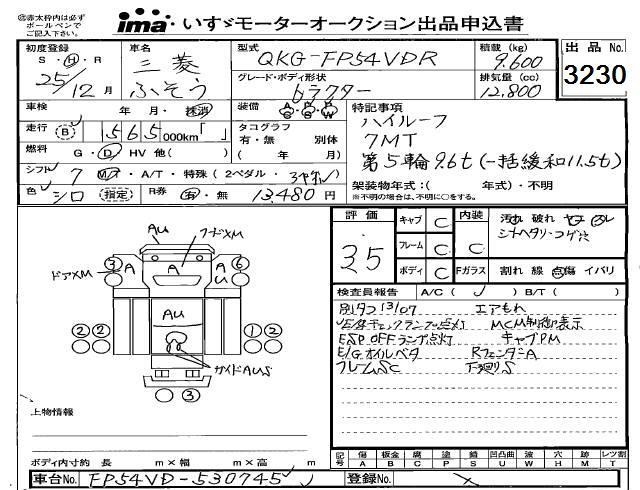 ㊟赤太枠内は必ず
ボールペンで
ご記入下さい。
ima いすゞモーターオークション出品申込書
初度登録
S・H・R
25/12月
車名
三菱
ふそう
型式
QKG-FP54VDR
グレード・ボディ形状
トラクター
積載 (kg)
9,600
排気量 (cc)
12,800
出品 No.
3230
車検
年 月・抹消
装備
A C P S P W
走行 (B) 565,000km「 」
タコグラフ
有・無 別体
( 年 月)
燃料 G・D・HV 他( )
シフト 7 M/T・A/T・特殊(2ペダル・
色 シロ (指定) R券 有・無 13,480円
特記事項
ハイルーフ
7MT
第5輪9.6t(一括緩和11.5t)
架装物年式:( 年式)・不明
※不明の場合は、不明に○をする。
評価
3.5
キャブ C
フレーム C
ボディ C
内装
C
Fガラス
汚れ 破れ ヤニ コゲ
シートヘタリ・コゲ穴
割れ 線 点傷 イバリ
検査員報告 A/C ( ) B/T ( )
別タコ13/07 エアもれ
E/Gチェックランプ点灯 MCM制御表示
ESP OFFランプ点灯 キャブPM
E/Gオイルベタ RフェンダーA
フレームSC 下廻りS
Au フードXM
ドアXM 3 A A A 6
Au
Au
2 2 1 2
サイドAUS
3
上物情報
ボディ内寸約 長 m×幅 m×高 m
記号
傷 板金 腐 塗 損 凹凸曲 波 穴 時 レツ割
A B C P S U W H M T
車台No. FP54VD-530745
登録No.